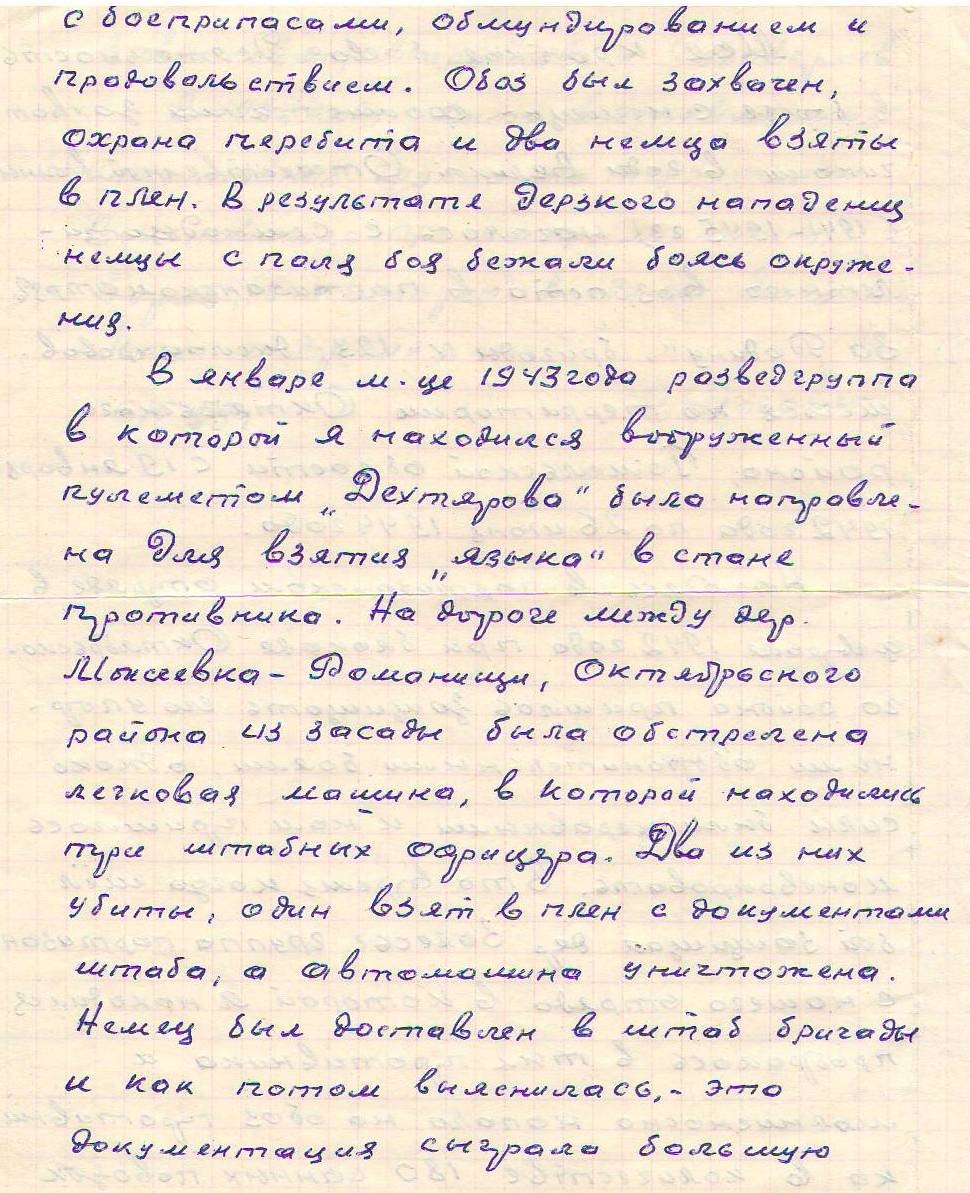 с боеприпасами, обмундированием и
продовольствием. Обоз был захвачен,
охрана перебита и два немца взяты
в плен. В результате дерзкого нападения
немцы с поля боя бежали боясь окруже-
ния.
В январе м-це 1943 года разведгруппа
в которой я находился вооруженный
пулеметом „Дехтярова“ была направле-
на для взятия „языка“ в стане
противника. На дороге между дер.
– Романищи, Октябрьского
района из засады была обстрелена
легковая машина, в которой находились
три штабных офицера. Два из них
убиты, один взят в плен с документами
штаба, а автомашина уничтожена.
Немец был доставлен в штаб бригады
и как потом выяснилась,- это
документация сыграла большую